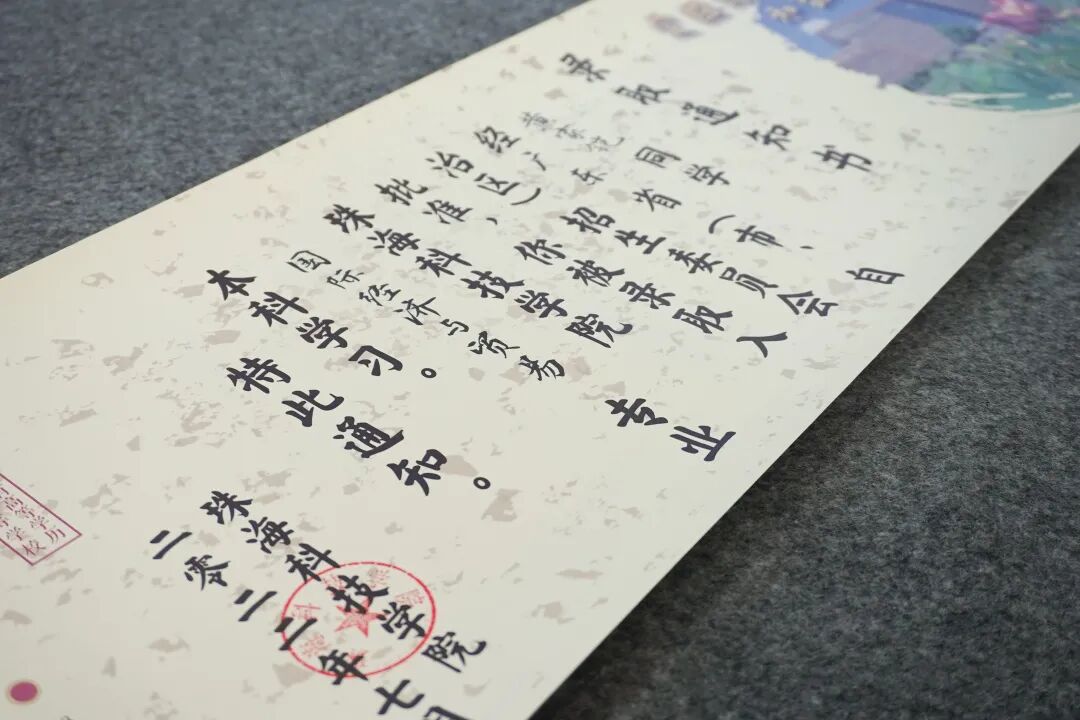 录取通知书
同学
经广东省（市、自
治区）招生委员会
批准，你被录取入
珠海科技学院
国际经济与贸易专业
本科学习。
特此通知。
珠海科技学院
二零二二年七月
高等学历
学校